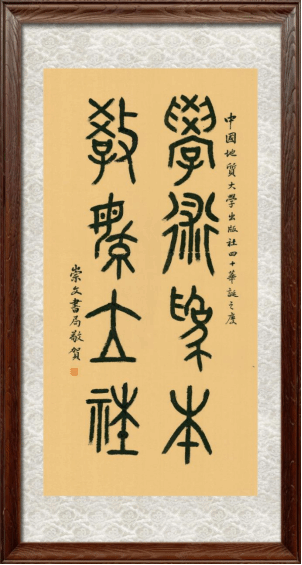 中國地質大學出版社四十華誕之慶
學術為本
教立社
崇文書局敬賀